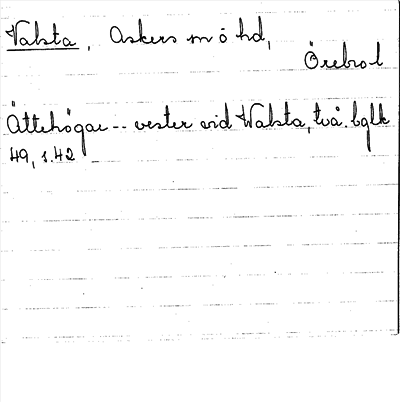 Valsta, Askers sn ö hd,
Örebro l
Ättehögar -- vester vid Walsta, två. bglk
49, s. 42 –